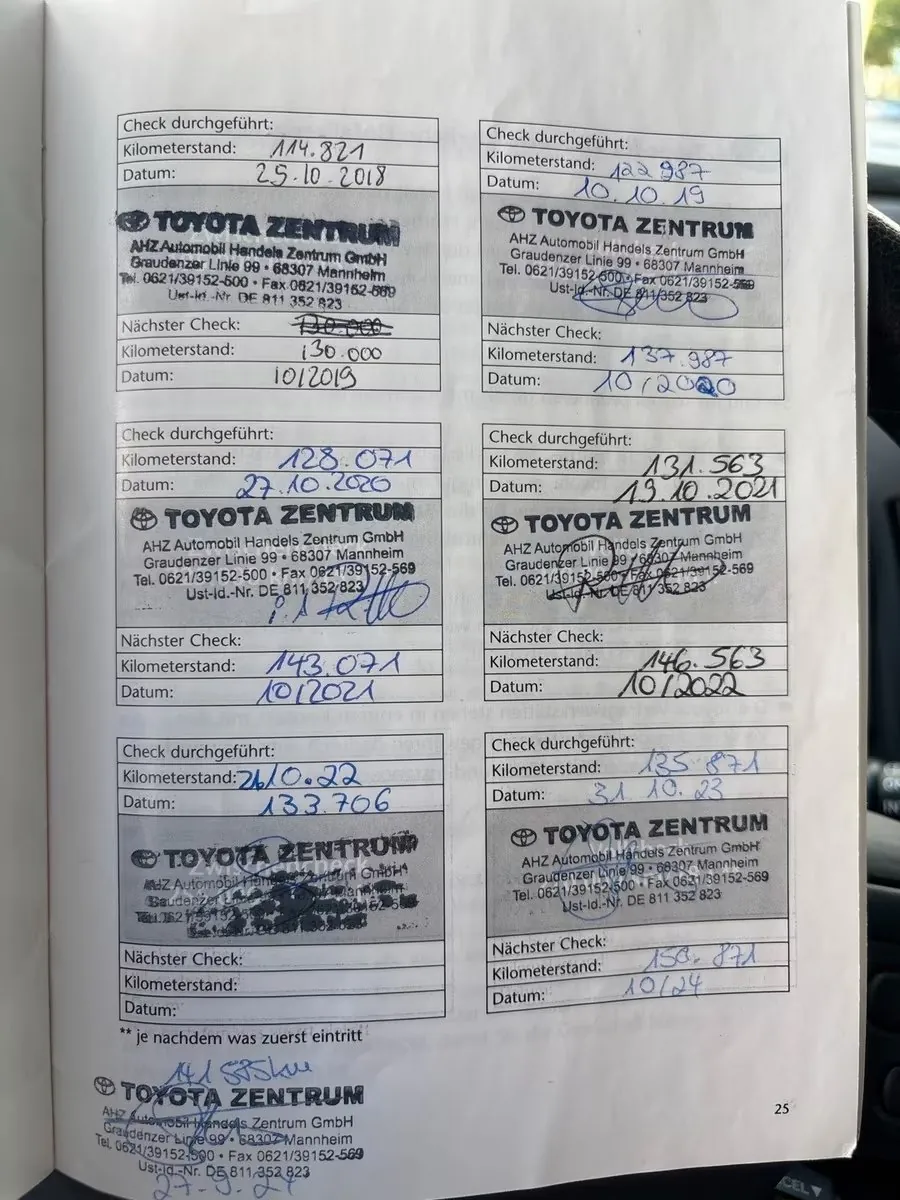 Check durchgeführt:
Kilometerstand: 114.821
Datum: 25.10.2018
TOYOTA ZENTRUM
AHZ Automobil Handels Zentrum GmbH
Graudenzer Linie 99 • 68307 Mannheim
Tel. 0621/39152-500 • Fax 0621/39152-569
Ust-Id.-Nr. DE 811 352 823
Nächster Check: 130.000
Kilometerstand: 130.000
Datum: 10/2019
Check durchgeführt:
Kilometerstand: 122 987
Datum: 10.10.19
TOYOTA ZENTRUM
AHZ Automobil Handels Zentrum GmbH
Graudenzer Linie 99 • 68307 Mannheim
Tel. 0621/39152-500 • Fax 0621/39152-569
Ust-Id.-Nr. DE 811 352 823
Nächster Check:
Kilometerstand: 137.987
Datum: 10/2020
Check durchgeführt:
Kilometerstand: 128.071
Datum: 27.10.2020
TOYOTA ZENTRUM
AHZ Automobil Handels Zentrum GmbH
Graudenzer Linie 99 • 68307 Mannheim
Tel. 0621/39152-500 • Fax 0621/39152-569
Ust-Id.-Nr. DE 811 352 823
Nächster Check:
Kilometerstand: 143.071
Datum: 10/2021
Check durchgeführt:
Kilometerstand: 131.563
Datum: 19.10.2021
TOYOTA ZENTRUM
AHZ Automobil Handels Zentrum GmbH
Graudenzer Linie 99 • 68307 Mannheim
Tel. 0621/39152-500 • Fax 0621/39152-569
Ust-Id.-Nr. DE 811 352 823
Nächster Check:
Kilometerstand: 146.563
Datum: 10/2022
Check durchgeführt:
Kilometerstand: 26.10.22
Datum: 133.706
TOYOTA ZENTRUM
Nächster Check:
Kilometerstand:
Datum:
Check durchgeführt:
Kilometerstand: 135 871
Datum: 31.10.23
TOYOTA ZENTRUM
AHZ Automobil Handels Zentrum GmbH
Graudenzer Linie 99 • 68307 Mannheim
Tel. 0621/39152-500 • Fax 0621/39152-569
Ust-Id.-Nr. DE 811 352 823
Nächster Check:
Kilometerstand: 150.871
Datum: 10/24
** je nachdem was zuerst eintritt
141 585km
TOYOTA ZENTRUM
AHZ Automobil Handels Zentrum GmbH
Graudenzer Linie 99 • 68307 Mannheim
Tel. 0621/39152-500 • Fax 0621/39152-569
Ust-Id.-Nr. DE 811 352 823
27.9.24
25